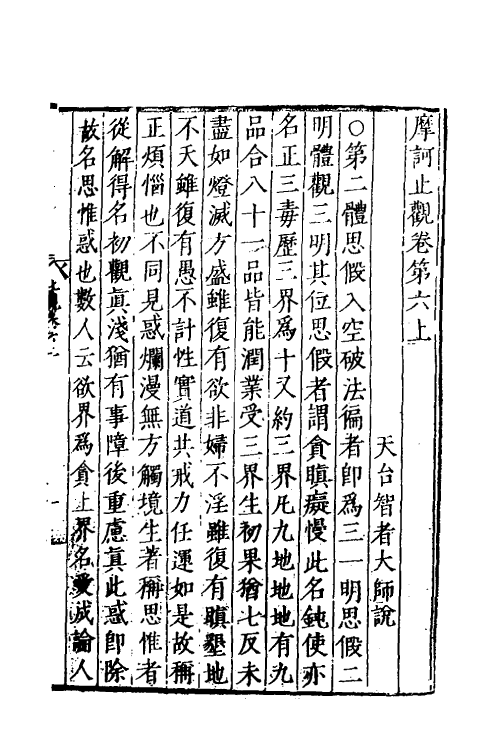 摩訶止觀卷第六上
天台智者大師說
○第二體思假入空破法徧者卽爲三一明思假二
明體觀三明其位思假者謂貪瞋癡慢此名鈍使亦
名正三毒歷三界爲十又約三界凡九地地地有九
品合八十一品皆能潤業受三界生初果猶七反未
盡如燈滅方盛雖復有欲非婦不淫雖復有瞋墾地
不夭雖復有愚不計性實道共戒力任運如是故稱
正煩惱也不同見惑爛漫無方觸境生著稱思惟者
從解得名初觀眞淺猶有事障後重慮眞此惑卽除
故名思惟惑也數人云欲界爲貪上界名愛成論人